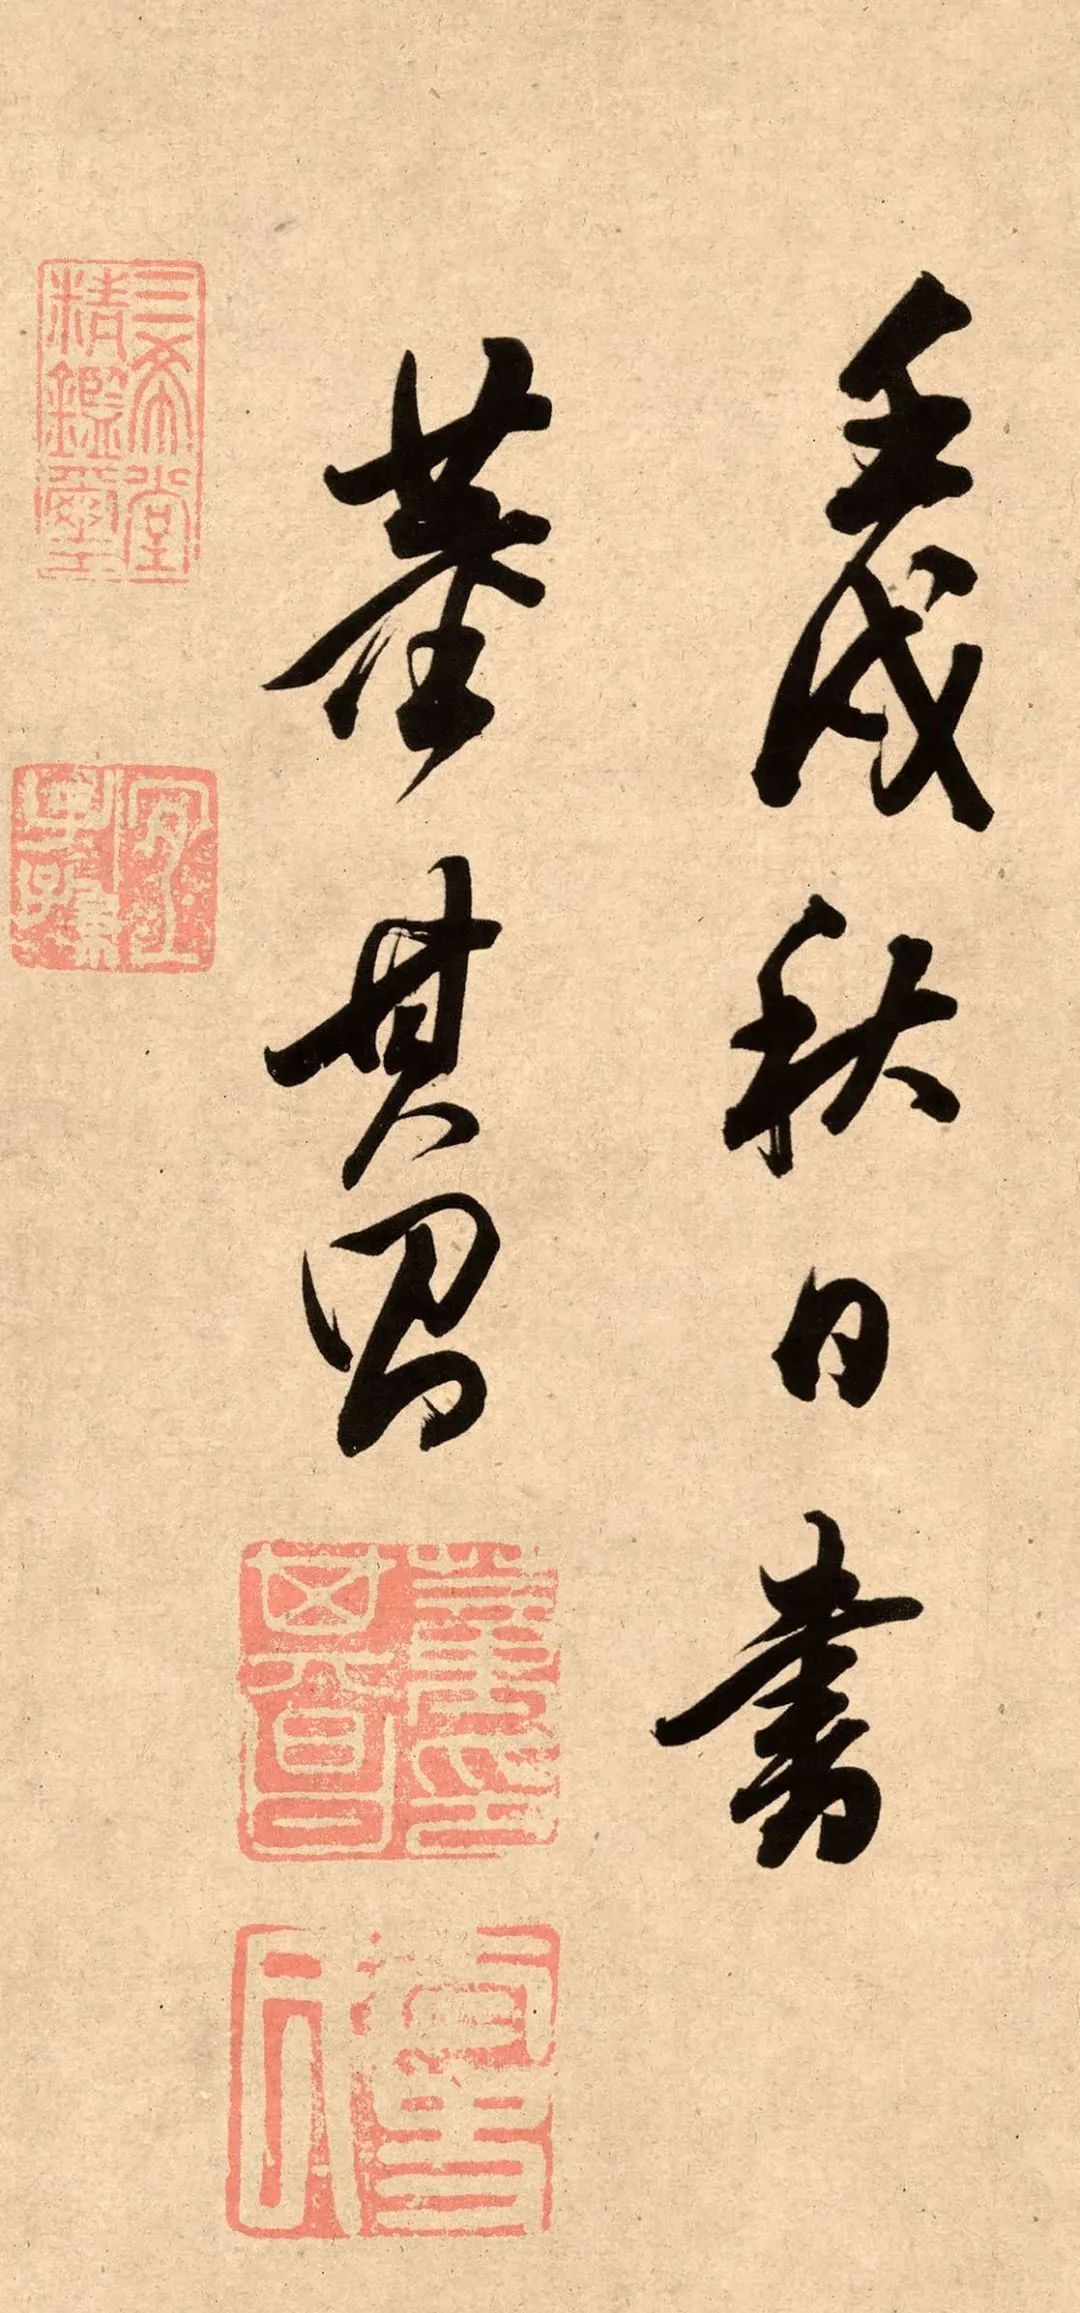 壬戌秋日書
董其昌
三希堂
精鑑璽
宜子孫
董其昌印